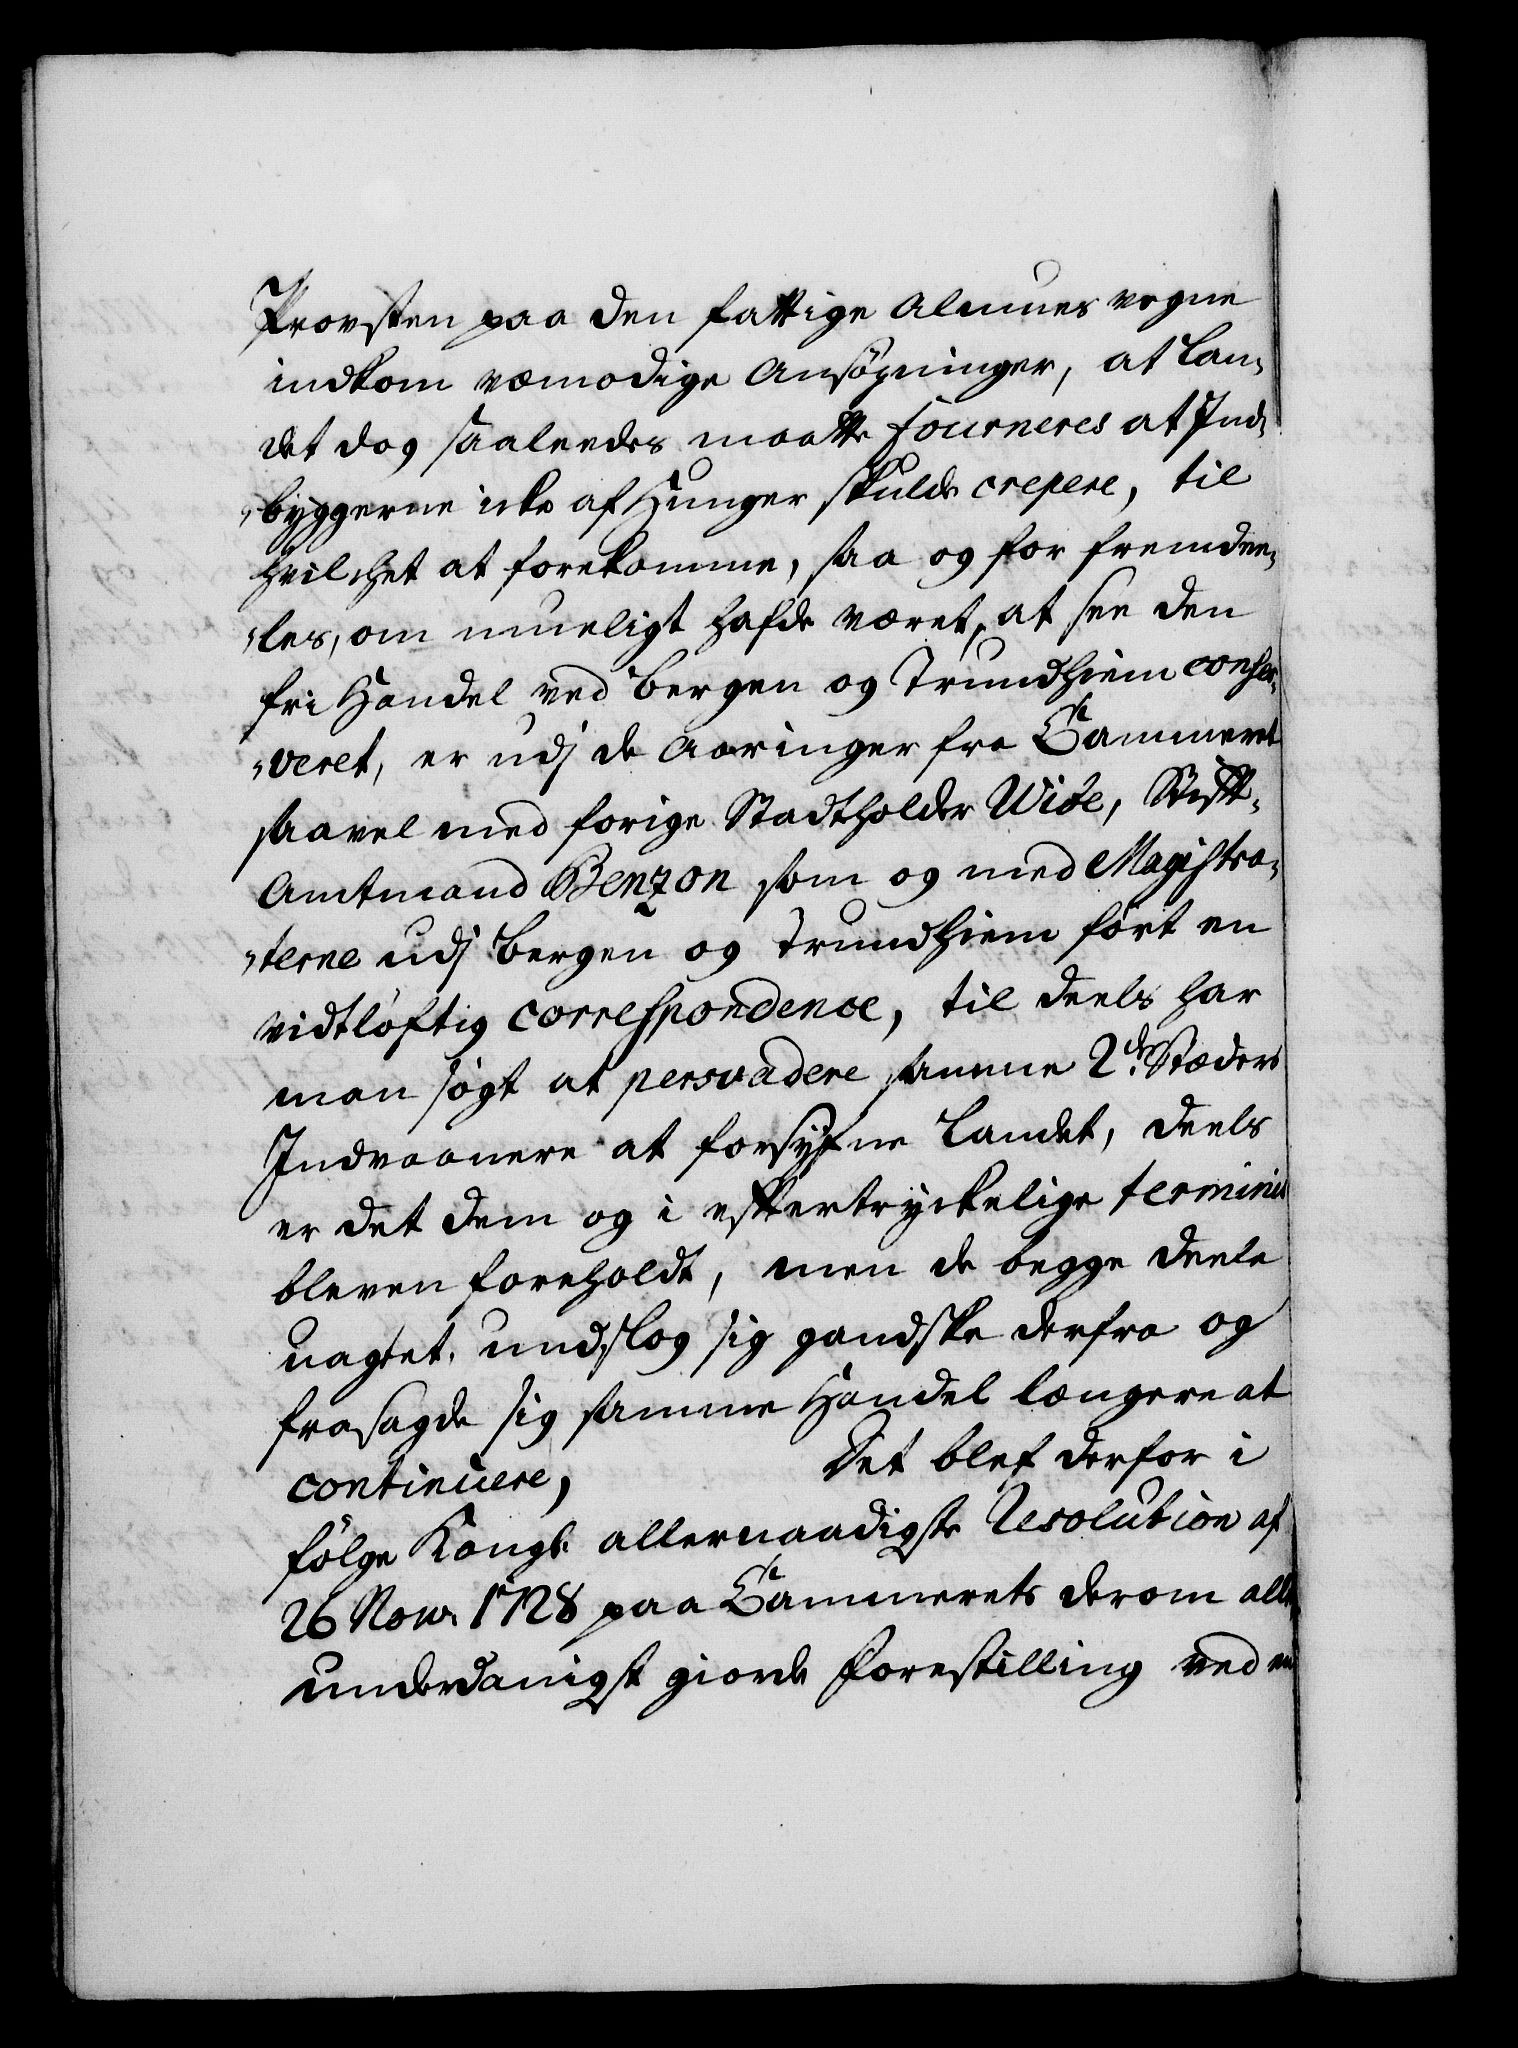 Provsten paa den fattige Almues vegne
indkom vemodige Ansögninger, at Lan„
det dog saaleedes maatte fourneres at Ind„
„byggerne icke af Hunger skulde crepere, til
hvilchet at forekomme, saa og for fremdee„
„les, om mueligt hafde været, at see den
fri Handel ved Bergen og Trundhiem conser„
„veret, er udj de Aaringer fra Cammeret
saavel med forige Stadtholder Wibe, Stift„
Amtmand Benzon som og med Magistra„
„terne udj Bergen og Trundhiem fört en
vidtlöftig correspondence, til deels har
man sögt at persvadere samme 2de Stæders
Indvaanere at forsyfne Landet, deels
er det dem og i eftertryckelige terminis
bleven foreholdt, men de begge deele
uagtet, undslog sig gandske derfra og
frasagde sig samme Handel længere at
continuere, Det blef derfor i
fölge Kongl. allernaadigste Resolution af
26 Novr. 1728 paa Cammerets derom aller
underdanigst giorde Forestilling ved en